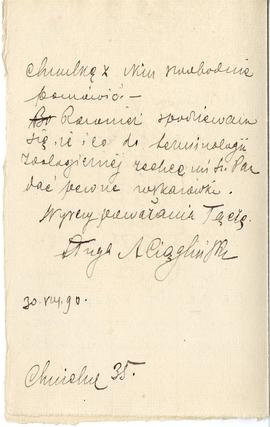 chwilkę z Nim swobodnie
pomówić. –
Również spodziewam
się, iż i co do terminologii
zoologicznej zechce mi Sz. Pan
dać pewne wskazówki.
Wyrazy poważania łączę
Sługa A Ciągliński
30. VIII. 90.
Chmielna 35.